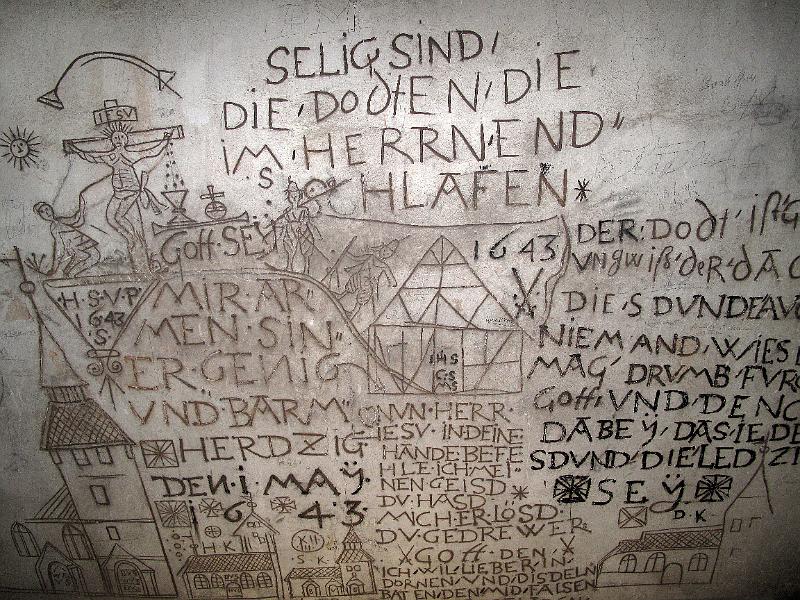 SELIG SIND
DIE DODTEN DIE
IM HERRN END
S HLAFEN
IESV
GOTT SEY
1643
DER DODT IST G
VNGWISS DER DAC
H.S.V.P.
1643
.S.
MIR AR"
MEN SIN"
ER GENIG
VND BARM"
HERDZIG
DEN 1 MAY
1643
DIE SDVND
NIEMAND WIES
MAG DRVMB FVR
GOTT VND DENC
DABEY DAS IEDE
SDVND DIE LEDZI
SEY
D.K
IHS
NVN HERR
IESV IN DEINE
HÄNDE BEFE
HLE ICH MEI
NEN GEISD
DV HASD
MICH ERLÖSD
DV GEDREWER
GOTT DEN
ICH WIL LIEBER IN
DORNEN VND DISDELN
BATEN DEN MID FALSEN
H K
S K